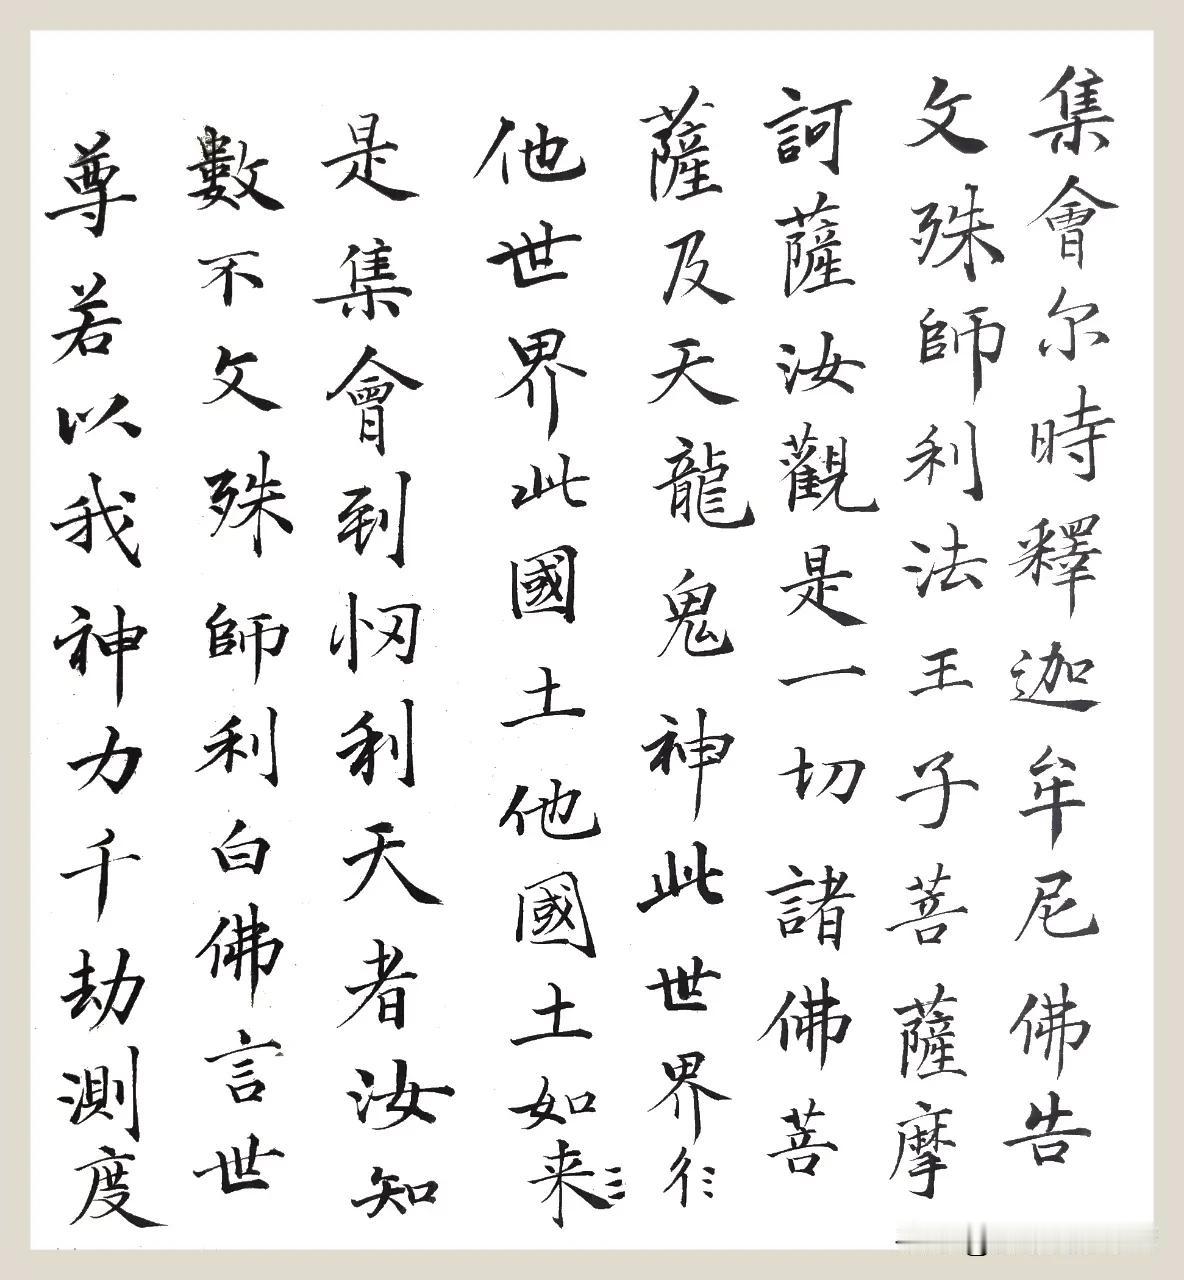 集會尔時釋迦牟尼佛告
文殊師利法王子菩薩摩
訶薩汝觀是一切諸佛菩
薩及天龍鬼神此世界
他世界此國土他國土如来
是集會到忉利天者汝知
數不文殊師利白佛言世
尊若以我神力千劫測度